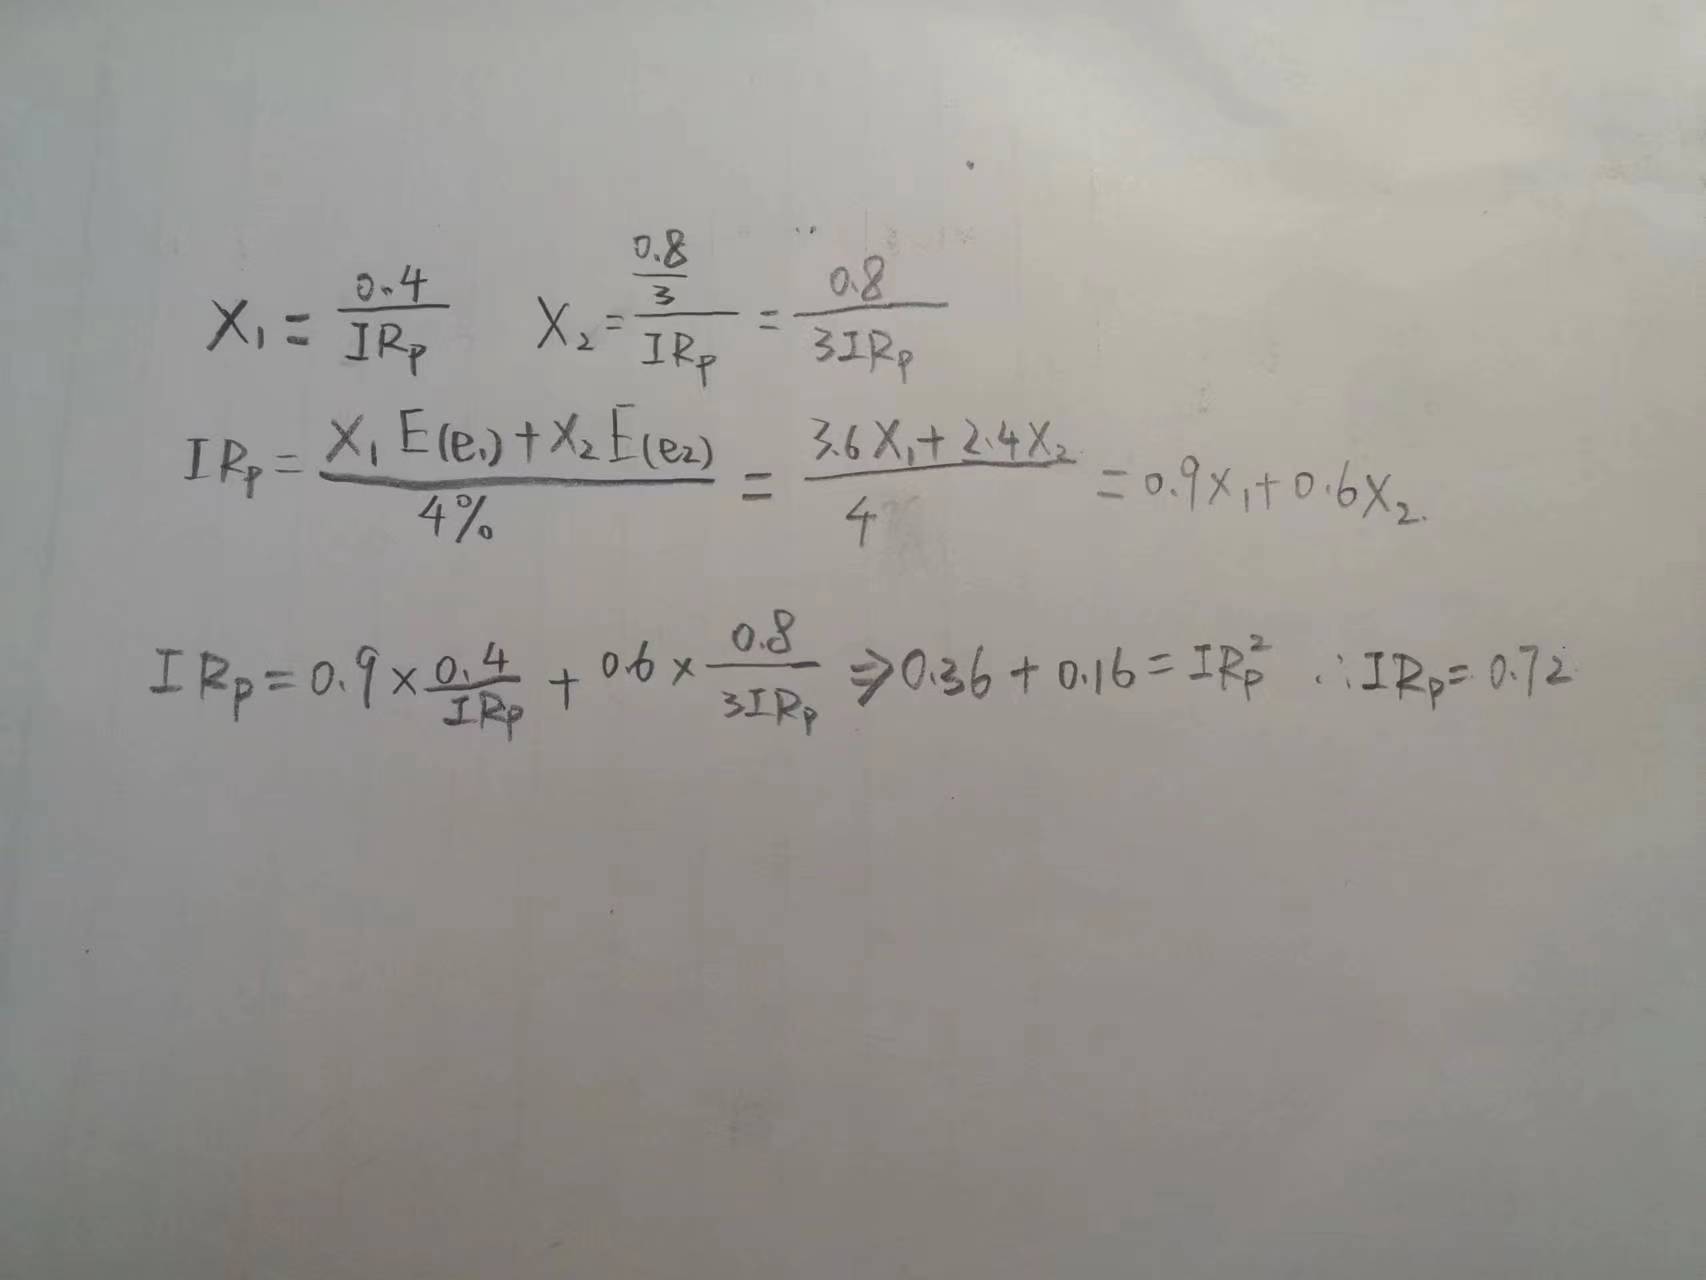 X₁ = 0.4/IRp X₂ = (0.8/3)/IRp = 0.8/3IRp
IRp = (X₁E(e₁)+X₂E(e₂))/4% = (3.6X₁+2.4X₂)/4 = 0.9X₁+0.6X₂.
IRp = 0.9×0.4/IRp + 0.6×0.8/3IRp ⇒ 0.36+0.16=IRp² ∴IRp=0.72